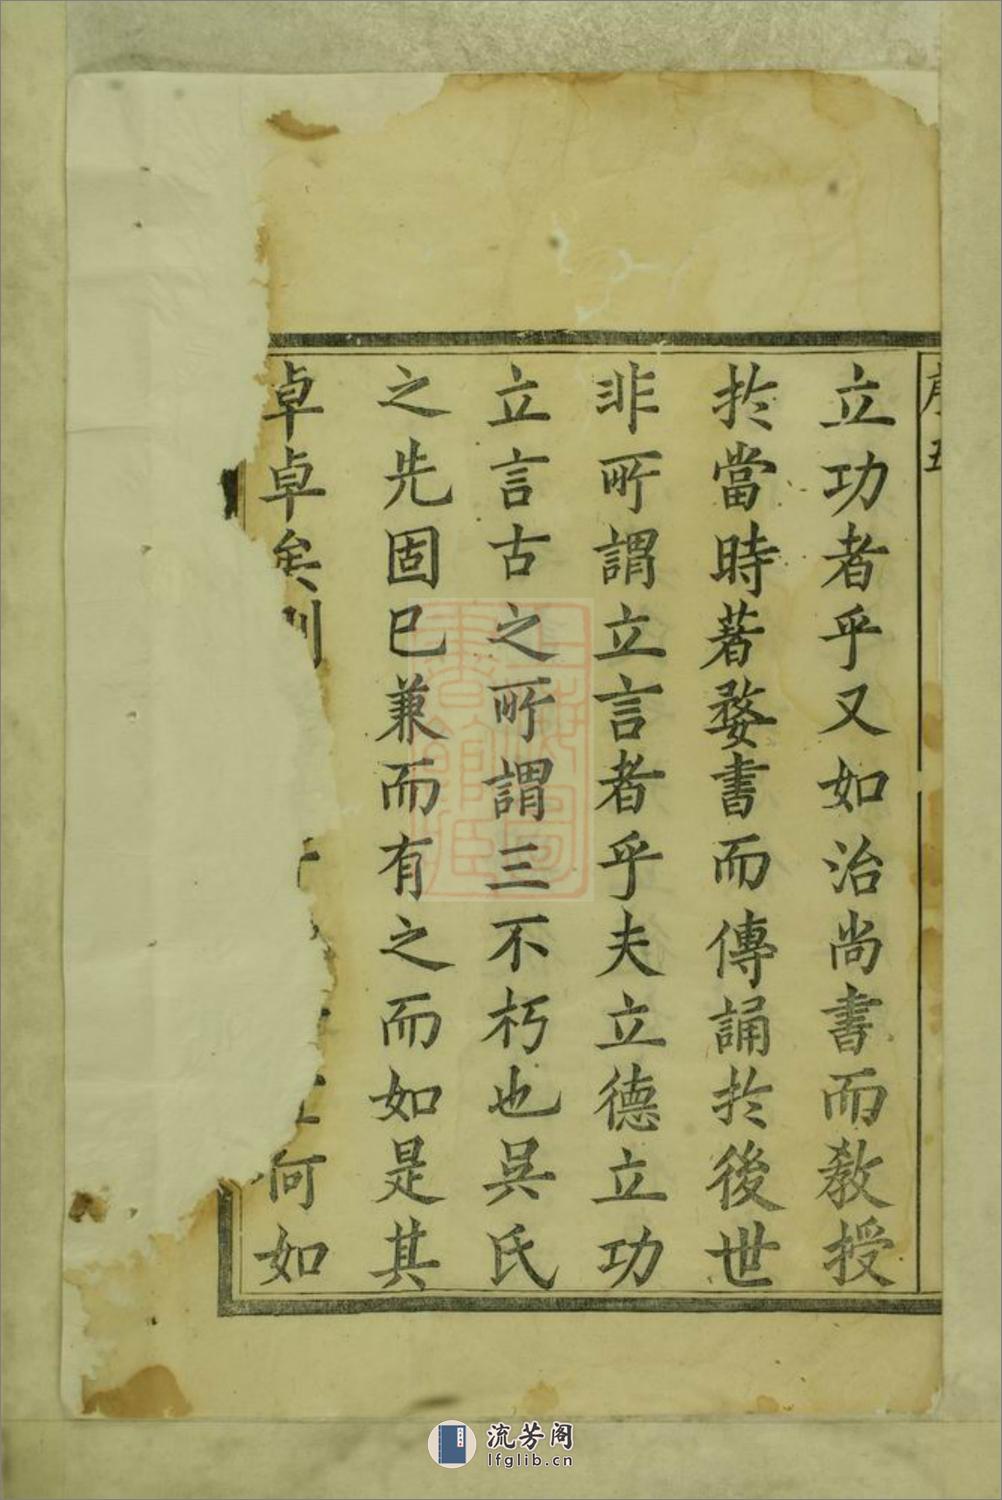 序五
立功者乎又如治尚書而教授
扵當時著婺書而傳誦扵後世
非所謂立言者乎夫立德立功
立言古之所謂三不朽也吳氏
之先固已兼而有之而如是其
卓卓矣何如
上海圖書館藏
流芳阁
lfglib.cn